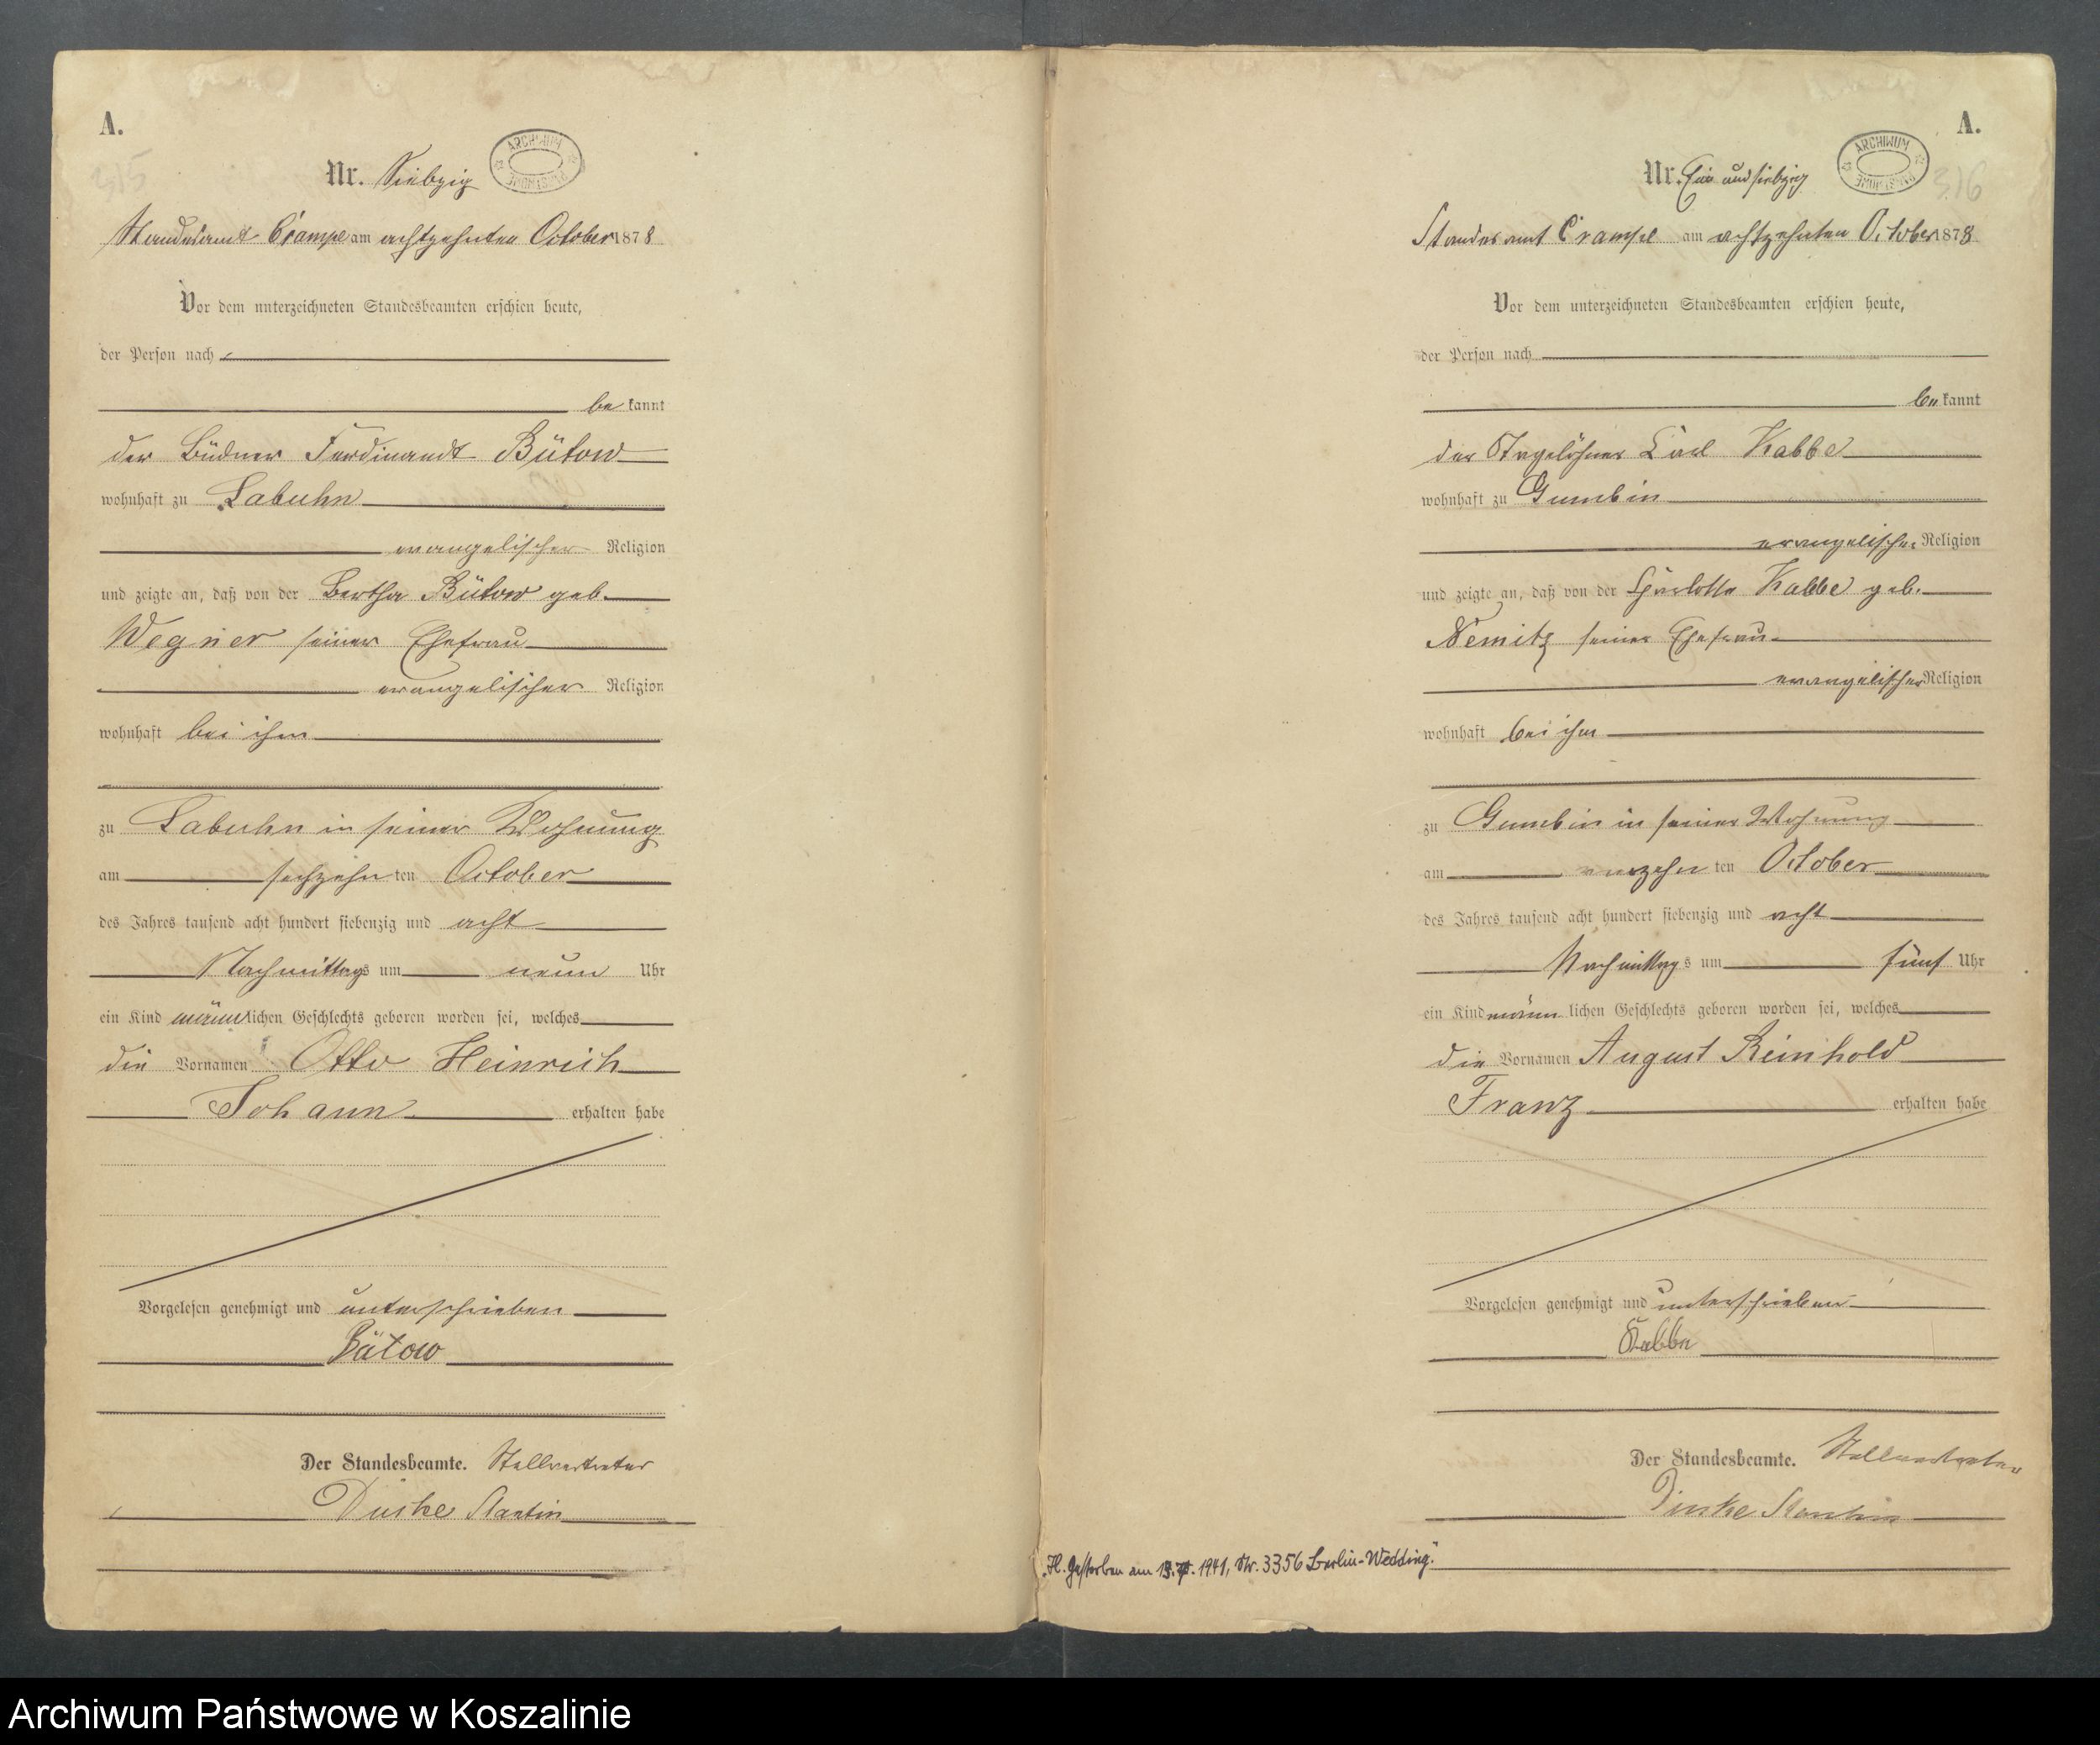 A.
315
Nr. Siebzig
ARCHIWUM PAŃSTWOWE
Standesamt Crampe am achtzehnten October 1878
Vor dem unterzeichneten Standesbeamten erschien heute,
der Person nach
be kannt
der Büdner Ferdinandt Bütow
wohnhaft zu Labuhn
evangelischer Religion
und zeigte an, daß von der Bertha Bütow geb.
Wegner seiner Ehefrau
evangelischer Religion
wohnhaft bei ihm
zu Labuhn in seiner Wohnung
am sechzehn ten October
des Jahres tausend acht hundert siebenzig und acht
Nachmittags um neun Uhr
ein Kind männlichen Geschlechts geboren worden sei, welches
die Vornamen Otto Heinrich
Johann erhalten habe
Vorgelesen genehmigt und unterschrieben
Bütow
Der Standesbeamte. Stellvertreter
A.
316
Nr. Ein und siebzig
ARCHIWUM PAŃSTWOWE
Standesamt Crampe am achtzehnten October 1878
Vor dem unterzeichneten Standesbeamten erschien heute,
der Person nach
be kannt
der Tagelöhner Carl Kabbe
wohnhaft zu Gumbin
evangelischer Religion
und zeigte an, daß von der Charlotte Kabbe geb.
Nemitz seiner Ehefrau
evangelischer Religion
wohnhaft bei ihm
zu Gumbin in seiner Wohnung
am ten October
des Jahres tausend acht hundert siebenzig und acht
Nachmittags um fünf Uhr
ein Kind männ lichen Geschlechts geboren worden sei, welches
die Vornamen August Reinhold
Franz erhalten habe
Vorgelesen genehmigt und unterschrieben
Kabbe
Der Standesbeamte. Stellvertreter
Gestorben am 1941, Nr. 3356 Berlin-Wedding."
Archiwum Państwowe w Koszalinie